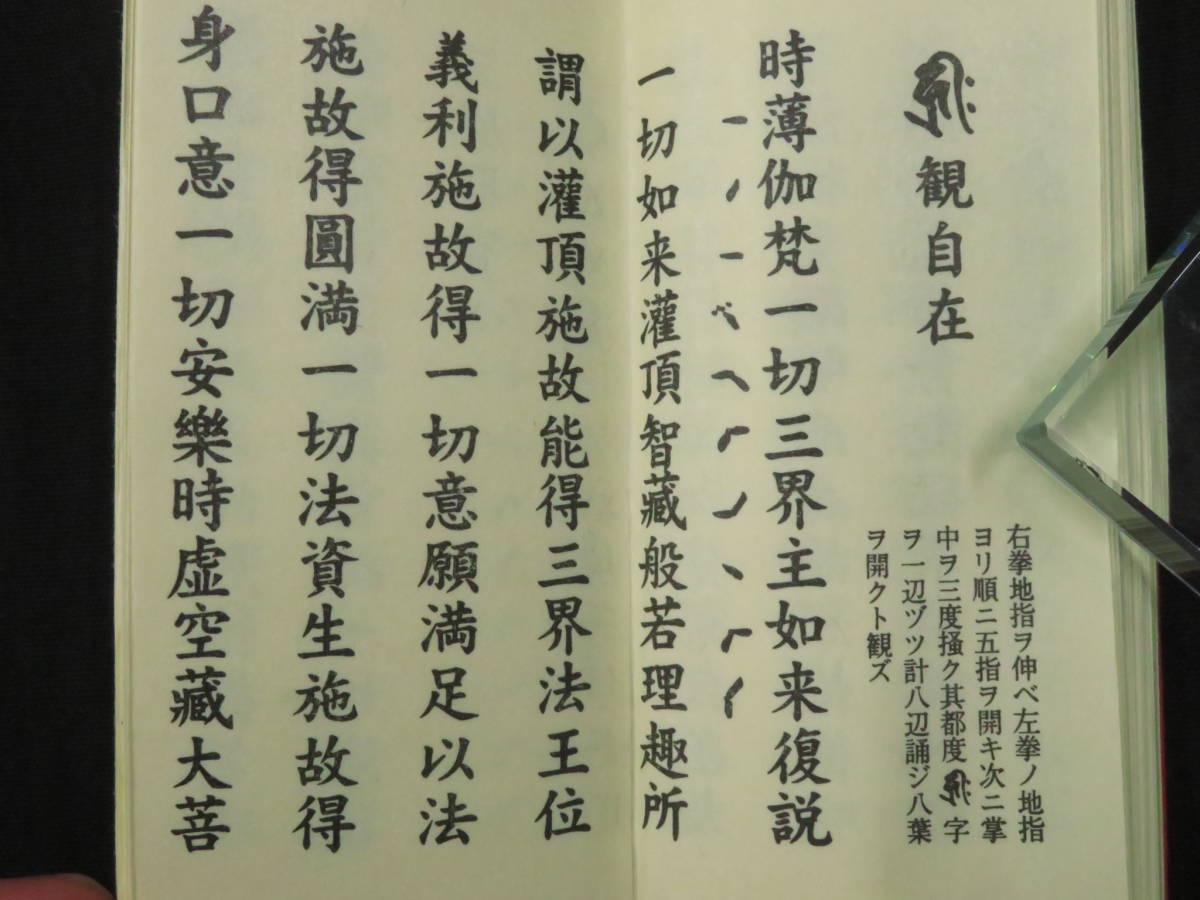 𑖮𑖿𑖨𑖱𑖾 観自在
右拳地指ヲ伸ベ左拳ノ地指
ヨリ順ニ五指ヲ開キ次ニ掌
中ヲ三度掻ク其都度𑖮𑖿𑖨𑖱𑖾字
ヲ一辺ヅツ計八辺誦ジ八葉
ヲ開クト観ズ
時薄伽梵一切三界主如来復説
一切如来灌頂智藏般若理趣所
謂以灌頂施故能得三界法王位
義利施故得一切意願満足以法
施故得圓満一切法資生施故得
身口意一切安樂時虚空藏大菩